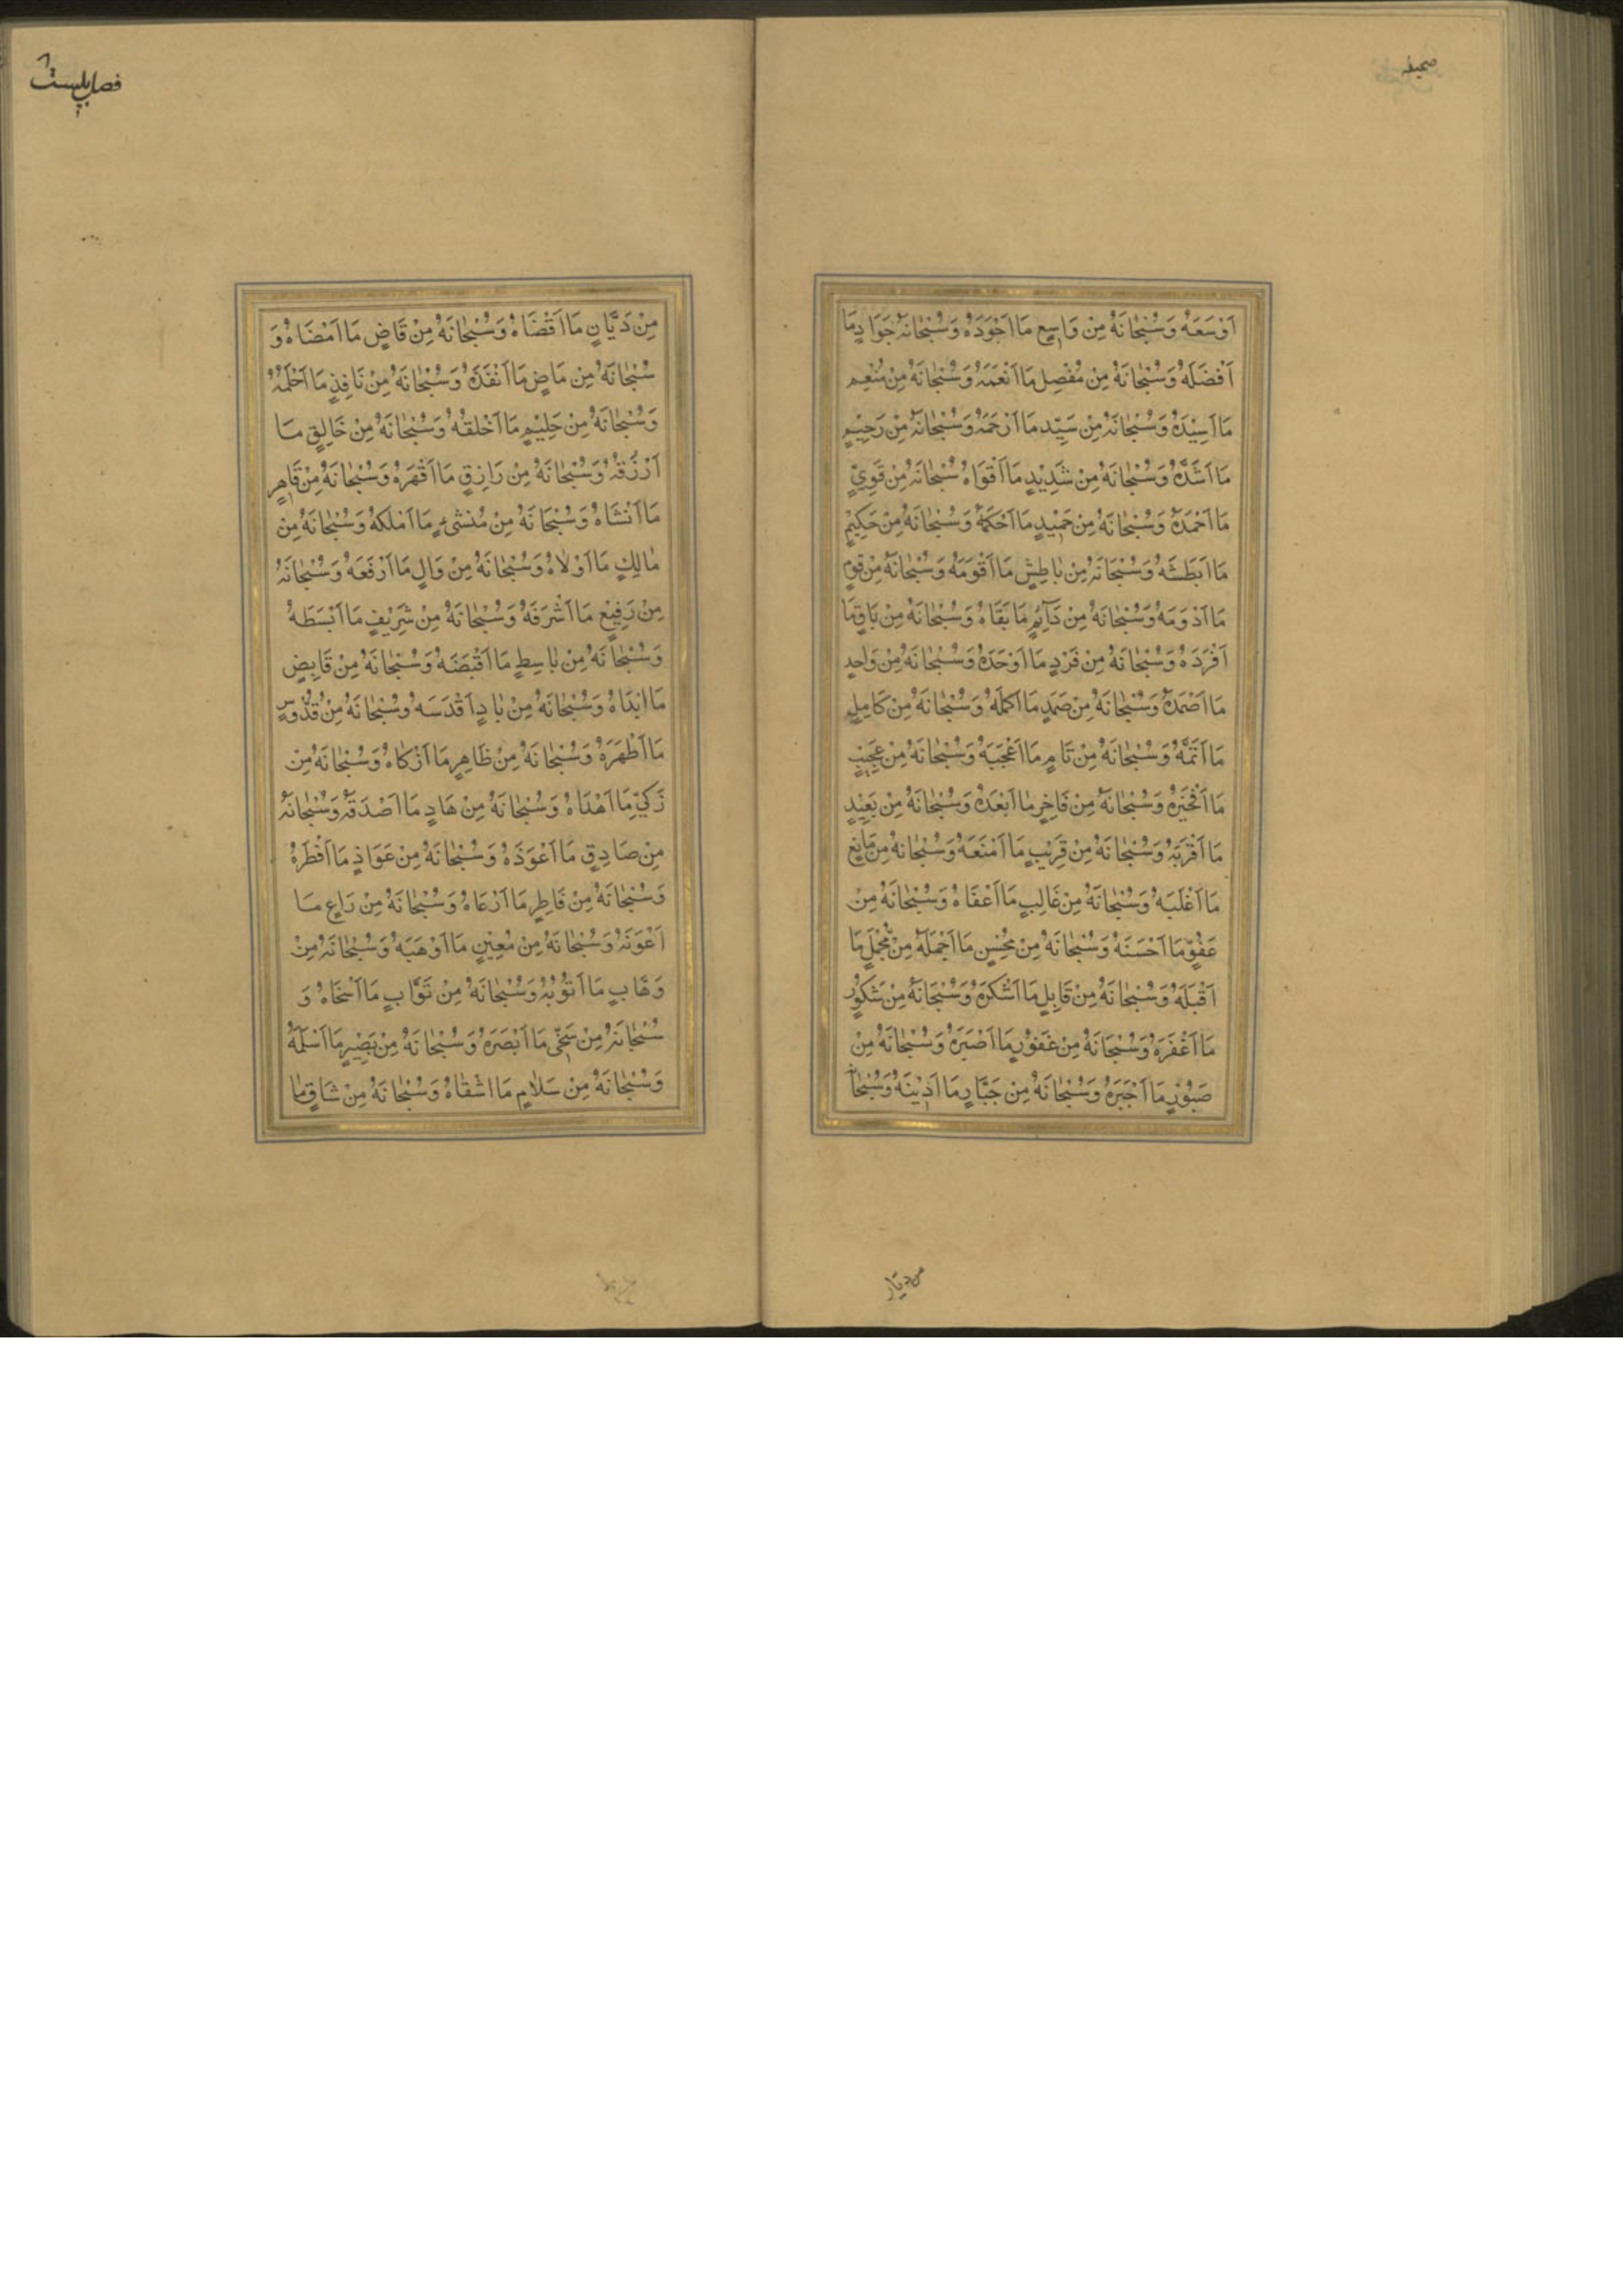 صحيفه
اَوْسَعَهُ وَسُبْحٰانَهُ مِنْ وَاسِعٍ مَا اَجْوَدَهُ وَسُبْحٰانَهُ جَوَادٍ مَا
اَفْضَلَهُ وَسُبْحٰانَهُ مِنْ مُفْضِلٍ مَا اَنْعَمَهُ وَسُبْحٰانَهُ مِنْ مُنْعِمٍ
مَا اَسِيْدَهُ وَسُبْحٰانَهُ مِنْ سَيِّدٍ مَا اَرْحَمَهُ وَسُبْحٰانَهُ مِنْ رَحِيْمٍ
مَا اَشَدَّهُ وَسُبْحٰانَهُ مِنْ شَدِيْدٍ مَا اَقْوَاهُ سُبْحٰانَهُ مِنْ قَوِيٍّ
مَا اَحْمَدَهُ وَسُبْحٰانَهُ مِنْ حَمِيْدٍ مَا اَحْكَمَهُ وَسُبْحٰانَهُ مِنْ حَكِيْمٍ
مَا اَبْطَشَهُ وَسُبْحٰانَهُ مِنْ بٰاطِشٍ مَا اَقْوَمَهُ وَسُبْحٰانَهُ مِنْ قَوِمٍ
مَا اَدْوَمَهُ وَسُبْحٰانَهُ مِنْ دَآئِمٍ مَا بَقَاهُ وَسُبْحٰانَهُ مِنْ بَاقٍ مَا
اَفْرَدَهُ وَسُبْحٰانَهُ مِنْ فَرْدٍ مَا اَوْحَدَهُ وَسُبْحٰانَهُ مِنْ وَاحِدٍ
مَا اَصْمَدَهُ وَسُبْحٰانَهُ مِنْ صَمَدٍ مَا اَكْمَلَهُ وَسُبْحٰانَهُ مِنْ كَامِلٍ
مَا اَتَمَّهُ وَسُبْحٰانَهُ مِنْ تَامٍ مَا اَعْجَبَهُ وَسُبْحٰانَهُ مِنْ عَجِيْبٍ
مَا اَفْخَرَهُ وَسُبْحٰانَهُ مِنْ فَاخِرٍ مٰا اَبْعَدَهُ وَسُبْحٰانَهُ مِنْ بَعِيْدٍ
مَا اَقْرَبَهُ وَسُبْحٰانَهُ مِنْ قَرِيْبٍ مَا اَمْنَعَهُ وَسُبْحٰانَهُ مِنْ مَانِعٍ
مَا اَغْلَبَهُ وَسُبْحٰانَهُ مِنْ غَالِبٍ مَا اَعْفَاهُ وَسُبْحٰانَهُ مِنْ
عَفُوٍّ مَا اَحْسَنَهُ وَسُبْحٰانَهُ مِنْ مُحْسِنٍ مَا اَجْمَلَهُ مِنْ مُجْمِلٍ مَا
اَقْبَلَهُ وَسُبْحٰانَهُ مِنْ قَابِلٍ مَا اَشْكَرَهُ وَسُبْحٰانَهُ مِنْ شَكُوْرٍ
مَا اَغْفَرَهُ وَسُبْحٰانَهُ مِنْ غَفُوْرٍ مَا اَصْبَرَهُ وَسُبْحٰانَهُ مِنْ
صَبُوْرٍ مَا اَجْبَرَهُ وَسُبْحٰانَهُ مِنْ جَبَّارٍ مَا اَدْيَنَهُ وَسُبْحٰانَهُ
من ديان
مِنْ دَيَّانٍ مَا اَقْضَاهُ وَسُبْحٰانَهُ مِنْ قَاضٍ مَا اَمْضَاهُ وَ
سُبْحٰانَهُ مِنْ مَاضٍ مَا اَنْفَذَهُ وَسُبْحٰانَهُ مِنْ نَافِذٍ مَا اَحْلَمَهُ
وَسُبْحٰانَهُ مِنْ حَلِيْمٍ مَا اَخْلَقَهُ وَسُبْحٰانَهُ مِنْ خَالِقٍ مَا
اَرْزَقَهُ وَسُبْحٰانَهُ مِنْ رَازِقٍ مَا اَقْهَرَهُ وَسُبْحٰانَهُ مِنْ قَاهِرٍ
مَا اَنْشَاهُ وَسُبْحٰانَهُ مِنْ مُنْشِئٍ مَا اَمْلَكَهُ وَسُبْحٰانَهُ مِنْ
مٰالِكٍ مَا اَوْلَاهُ وَسُبْحٰانَهُ مِنْ وَالٍ مَا اَرْفَعَهُ وَسُبْحٰانَهُ
مِنْ رَفِيْعٍ مَا اَشْرَفَهُ وَسُبْحٰانَهُ مِنْ شَرِيْفٍ مَا اَبْسَطَهُ
وَسُبْحٰانَهُ مِنْ بٰاسِطٍ مَا اَقْبَضَهُ وَسُبْحٰانَهُ مِنْ قَابِضٍ
مَا اَبْدَاهُ وَسُبْحٰانَهُ مِنْ بٰادٍ اَقْدَسَهُ وَسُبْحٰانَهُ مِنْ قُدُّوسٍ
مَا اَطْهَرَهُ وَسُبْحٰانَهُ مِنْ طَاهِرٍ مَا اَزْكَاهُ وَسُبْحٰانَهُ مِنْ
زَكِيٍّ مَا اَهْدَاهُ وَسُبْحٰانَهُ مِنْ هَادٍ مَا اَصْدَقَهُ وَسُبْحٰانَهُ
مِنْ صَادِقٍ مَا اَعْوَذَهُ وَسُبْحٰانَهُ مِنْ عَوَاذٍ مَا اَفْطَرَهُ
وَسُبْحٰانَهُ مِنْ فَاطِرٍ مَا اَرْعَاهُ وَسُبْحٰانَهُ مِنْ رَاعٍ مَا
اَعْوَنَهُ وَسُبْحٰانَهُ مِنْ مُعِيْنٍ مَا اَوْهَبَهُ وَسُبْحٰانَهُ مِنْ
وَهَّابٍ مَا اَتْوَبَهُ وَسُبْحٰانَهُ مِنْ تَوَّابٍ مَا اَسْخَاهُ وَ
سُبْحٰانَهُ مِنْ سَخِيٍّ مَا اَبْصَرَهُ وَسُبْحٰانَهُ مِنْ بَصِيْرٍ مَا اَسْلَمَهُ
وَسُبْحٰانَهُ مِنْ سَلَامٍ مَا اَشْفَاهُ وَسُبْحٰانَهُ مِنْ شَافٍ مٰا